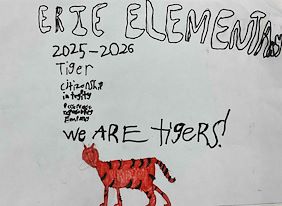 ERIE ELEMENTARY
2025-2026
Tiger
citizenship
integrity
We ARE tigers!